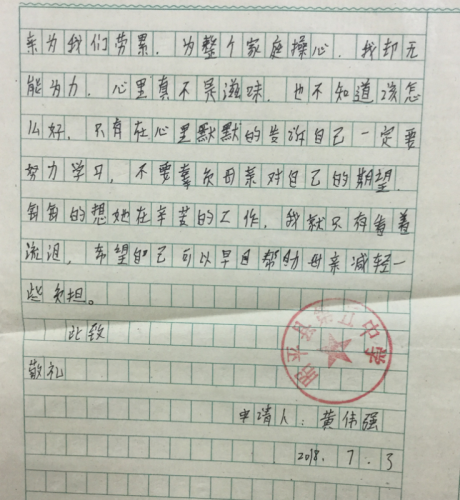 亲为我们劳累，为整个家庭操心，我却无
能为力，心里真不是滋味，也不知道该怎
么好，只有在心里默默的告诉自己一定要
努力学习，不要辜负母亲对自己的期望，
每每的想她在辛苦的工作，我就只有看着
流泪，希望自己可以早日帮助母亲减轻一
些负担。
此致
敬礼
申请人：黄伟强
2018.7.3
中学